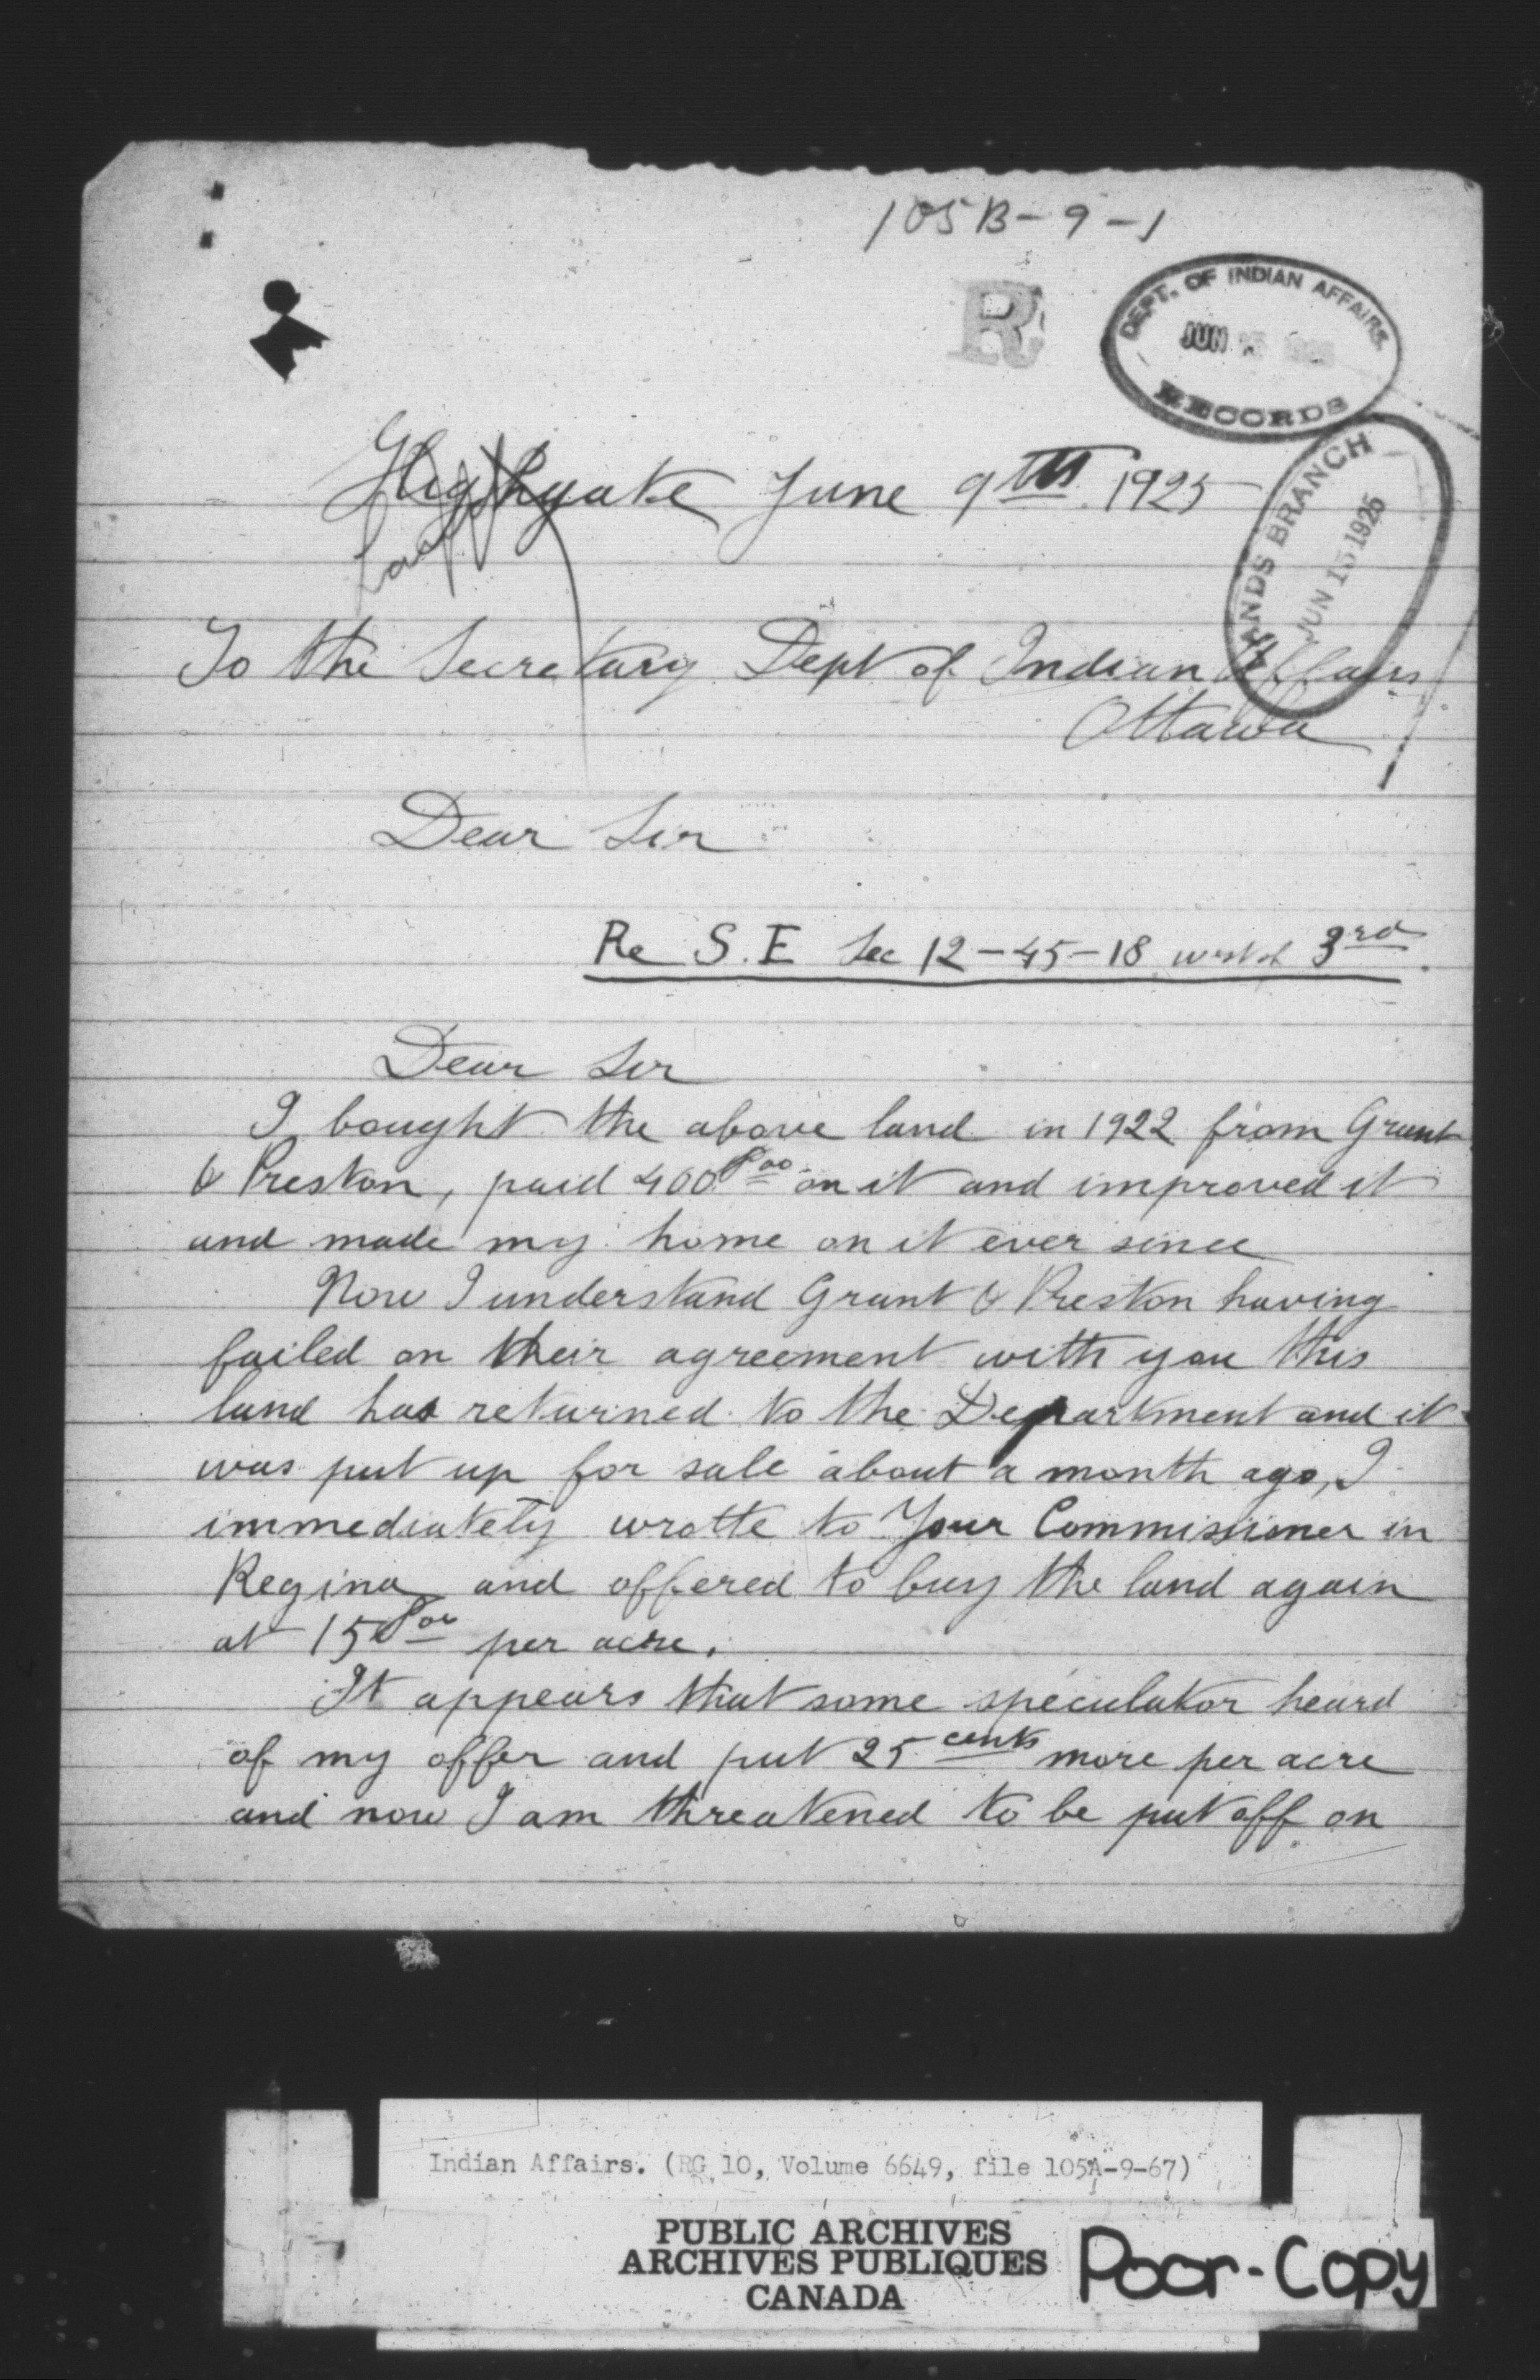 105B-9-1
R
DEPT. OF INDIAN AFFAIRS.
JUN
RECORDS
LANDS BRANCH
JUN 15 1925
Highgate June 9th 1925
To the Secretary Dept of Indian Affairs
Ottawa
Dear Sir
Re S.E Sec 12-45-18 west of 3rd
Dear Sir
I bought the above land in 1922 from Grant
& Preston, paid 400 $00 on it and improved it
and made my home on it ever since
Now I understand Grant & Preston having
failed on their agreement with you this
land has returned to the Department and it
was put up for sale about a month ago, I
immediately wrotte to Your Commissioner in
Regina and offered to buy the land again
at 15 $00 per acre.
It appears that some speculator heard
of my offer and put 25 cents more per acre
and now I am threatened to be put off on
Indian Affairs. (RG 10, Volume 6649, file 105A-9-67)
PUBLIC ARCHIVES
ARCHIVES PUBLIQUES
CANADA
Poor-Copy